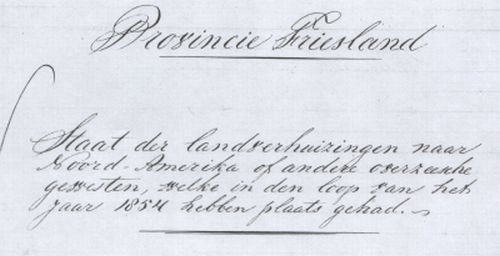 Provincie Friesland
Staat der landverhuizingen naar
Noord-Amerika of andere overzeesche
gewesten, welke in den loop van het
jaar 1854 hebben plaats gehad.